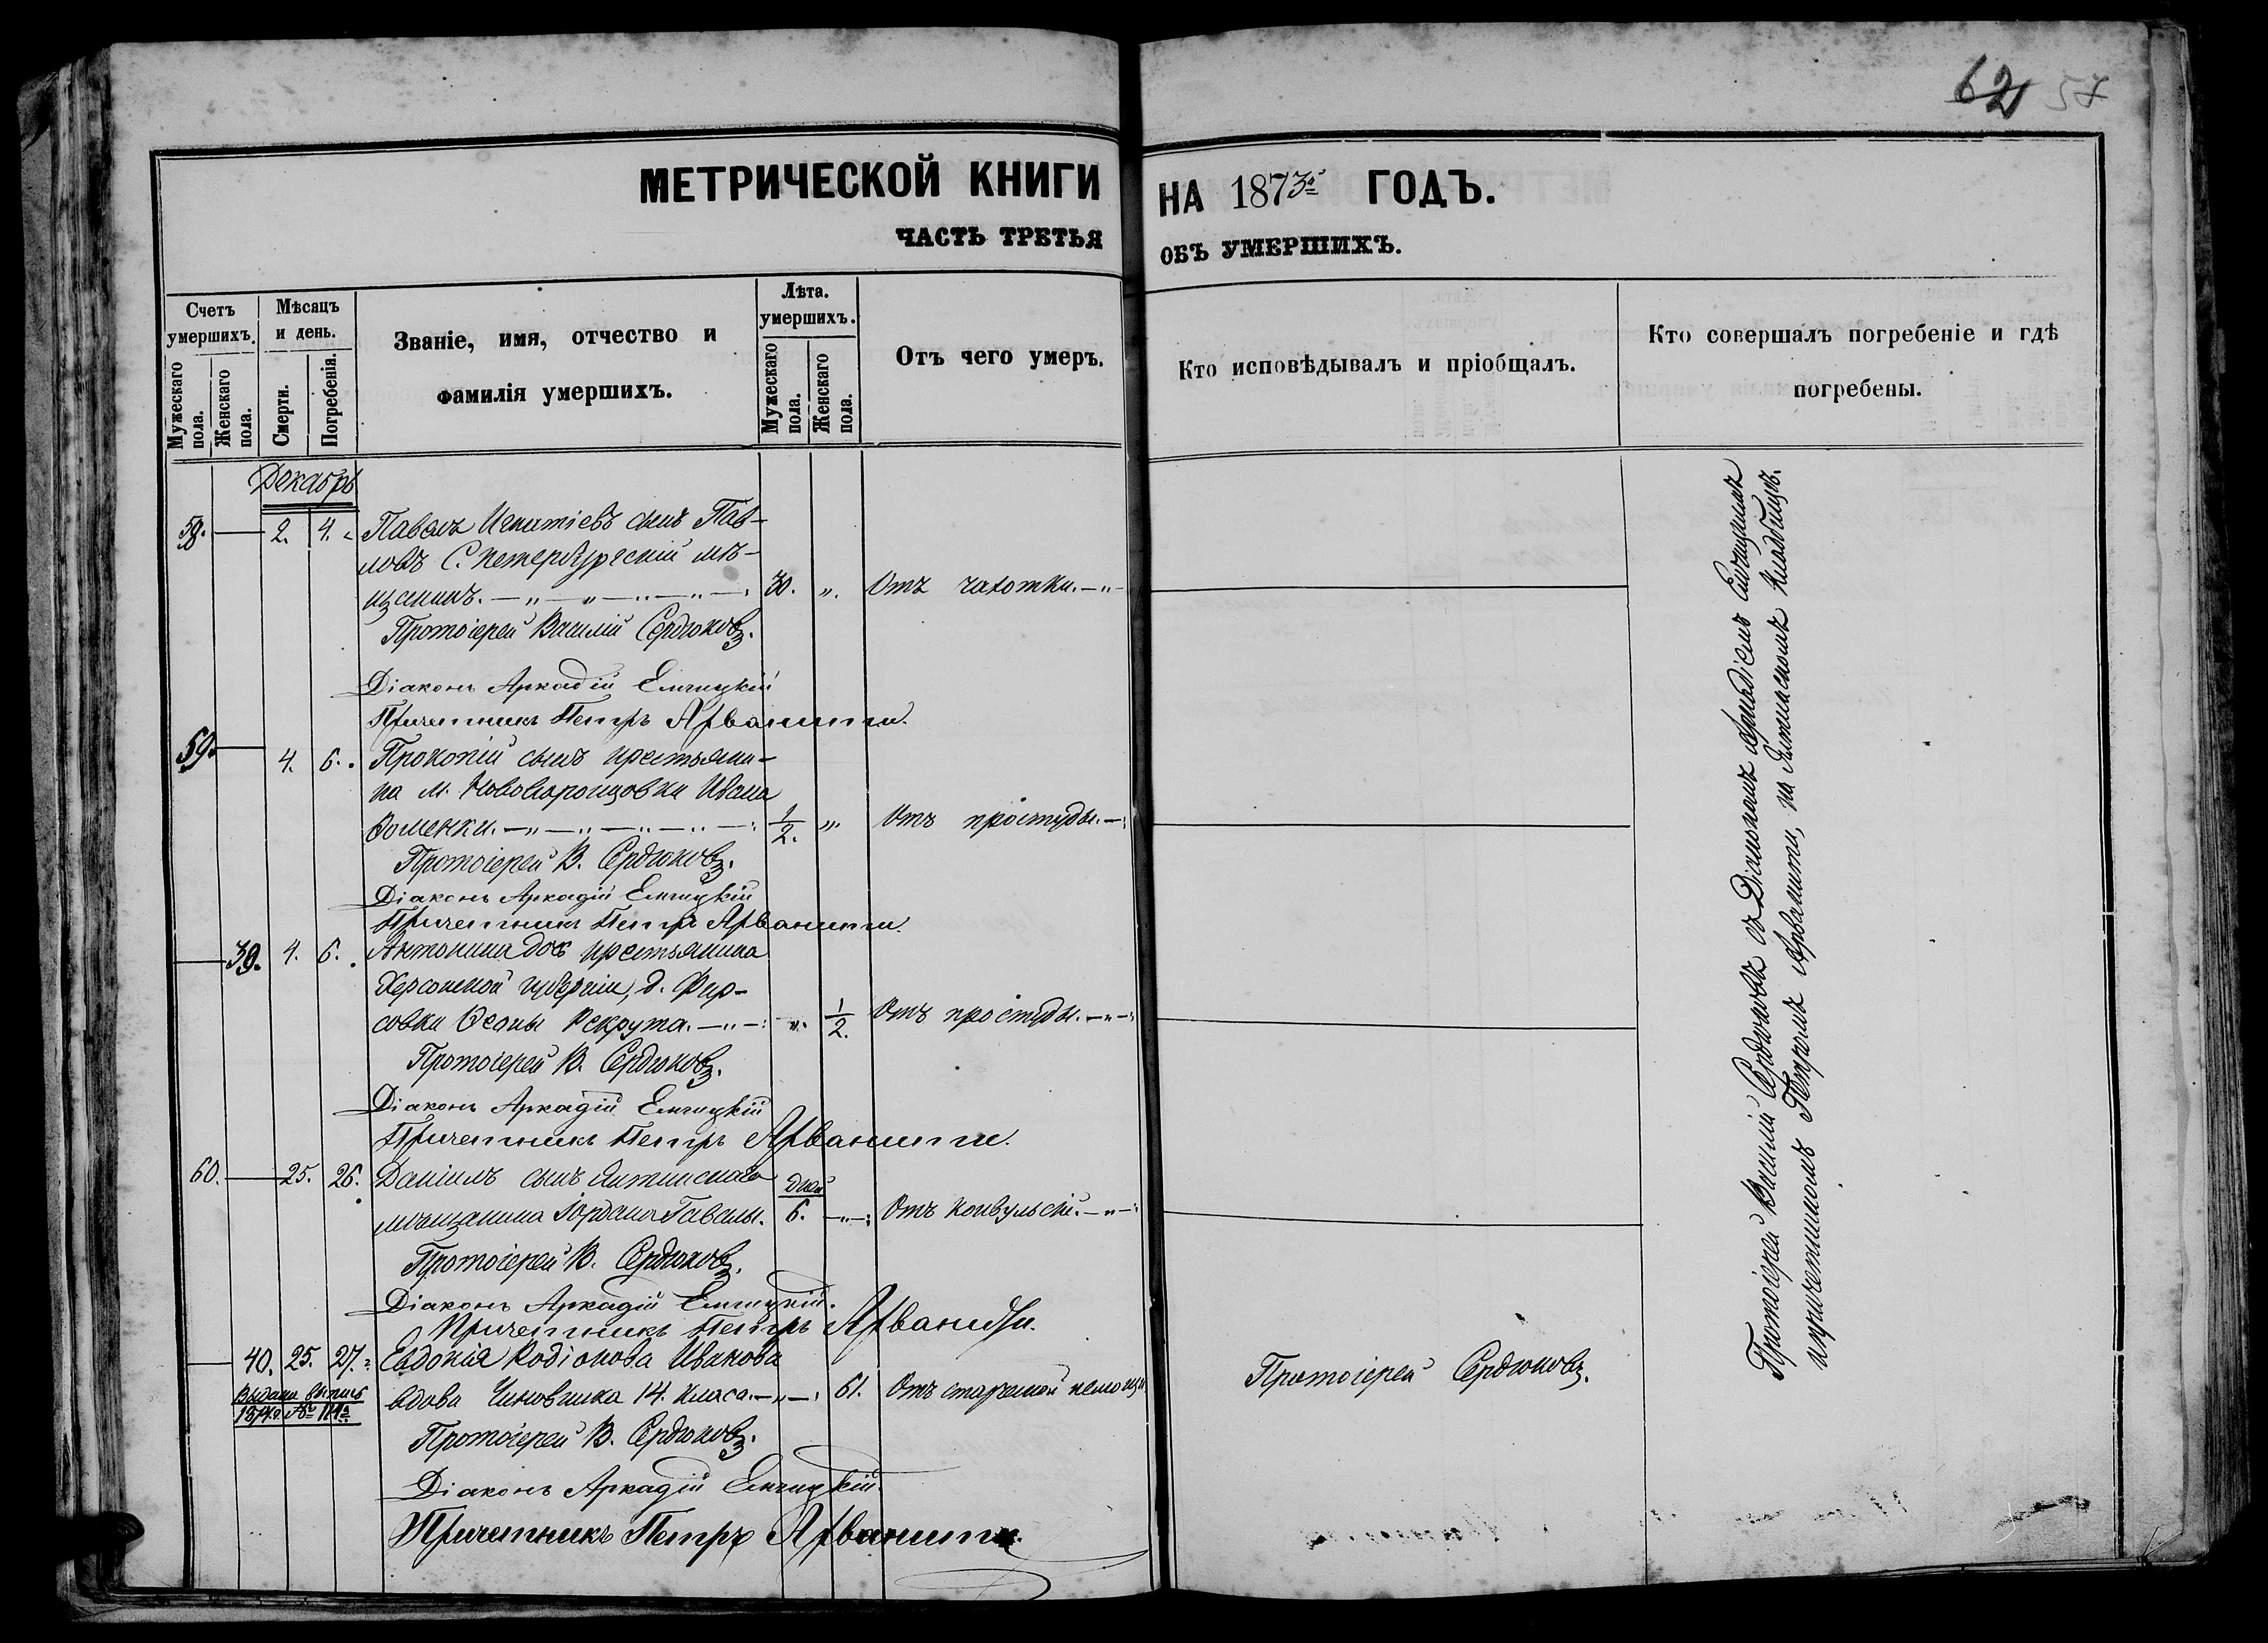 62 57
МЕТРИЧЕСКОЙ КНИГИ НА 1873й ГОДЪ.
ЧАСТЬ ТРЕТЬЯ ОБЪ УМЕРШИХЪ.
Счетъ умершихъ.
Мужескаго пола.
Женскаго пола.
Мѣсяцъ и день.
Смерти.
Погребенія.
Званіе, имя, отчество и
фамилія умершихъ.
Лѣта. умершихъ.
Мужескаго пола.
Женскаго пола.
Отъ чего умеръ.
Кто исповѣдывалъ и пріобщалъ.
Кто совершалъ погребеніе и гдѣ
погребены.
Декабрь
58. 2. 4. Павелъ Игнатіевъ сынъ Пав-
ловъ С. Петербургскій мѣ-
щанинъ. 30. „ Отъ чахотки.
Протоіерей Василій Сердюковъ.
Діаконъ Аркадій
Причетникъ Петръ Арванити.
59. 4. 6. Прокопій сынъ крестьяни-
на м. Нововоронцовки Ивана
1/2. „ Отъ простуды.
Протоіерей В. Сердюковъ.
Діаконъ Аркадій
Причетникъ Петръ Арванити.
39. 4. 6. Антонина дочь крестьянина
Херсонской губерніи, д. Фир-
совки Рекрута. „ 1/2. Отъ простуды.
Протоіерей В. Сердюковъ.
Діаконъ Аркадій
Причетникъ Петръ Арванити.
60. 25. 26. Даніилъ сынъ Ялтинскаго дней
мѣщанина Іордана 6. „ Отъ конвульсій.
Протоіерей В. Сердюковъ.
Діаконъ Аркадій
Причетникъ Петръ Арваниди.
40. 25. 27. Евдокія Родіонова Иванова
вдова Чиновника 14. класа. 61. Отъ старческой немощи Протоіерей Сердюковъ.
Выдана выпись
Протоіерей В. Сердюковъ.
Діаконъ Аркадій
Причетникъ Петръ Арванити.
Протоіерей Василій Сердюковъ съ Діакономъ Аркадіемъ
и причетникомъ Петромъ Арванити, на Ялтинскомъ кладбищѣ.